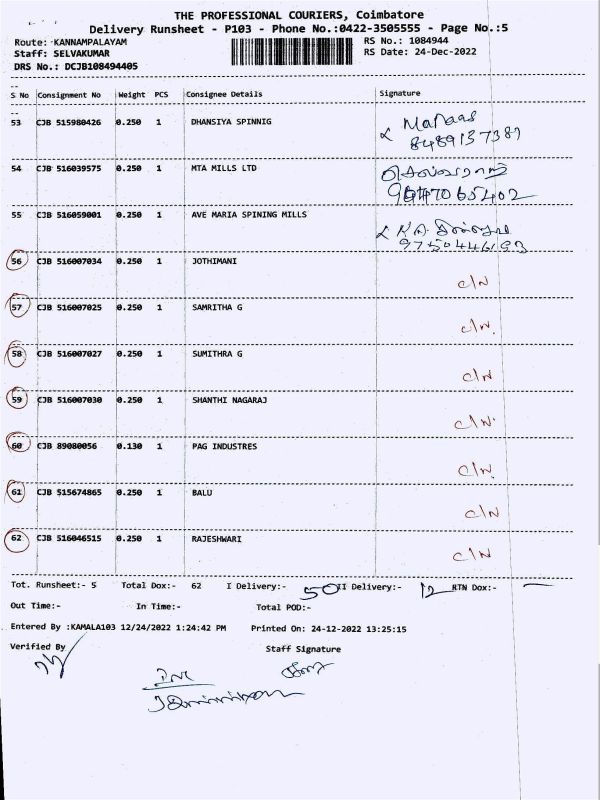 THE PROFESSIONAL COURIERS, Coimbatore
Delivery Runsheet - P103 - Phone No.:0422-3505555 - Page No.:5
Route: KANNAMPALAYAM RS No.: 1084944
Staff: SELVAKUMAR RS Date: 24-Dec-2022
DRS No.: DCJB108494405
S No Consignment No Weight PCS Consignee Details Signature
53 CJB 515980426 0.250 1 DHANSIYA SPINNIG
54 CJB 516039575 0.250 1 MTA MILLS LTD
55 CJB 516059001 0.250 1 AVE MARIA SPINING MILLS
56 CJB 516007034 0.250 1 JOTHIMANI C/N
57 CJB 516007025 0.250 1 SAMRITHA G C/N.
58 CJB 516007027 0.250 1 SUMITHRA G C/N
59 CJB 516007030 0.250 1 SHANTHI NAGARAJ C/N.
60 CJB 89080056 0.130 1 PAG INDUSTRES C/N.
61 CJB 515674865 0.250 1 BALU C/N
62 CJB 516046515 0.250 1 RAJESHWARI C/N
Tot. Runsheet:- 5 Total Dox:- 62 I Delivery:- 50 II Delivery:- 12 RTN Dox:- —
Out Time:- In Time:- Total POD:-
Entered By :KAMALA103 12/24/2022 1:24:42 PM Printed On: 24-12-2022 13:25:15
Verified By Staff Signature